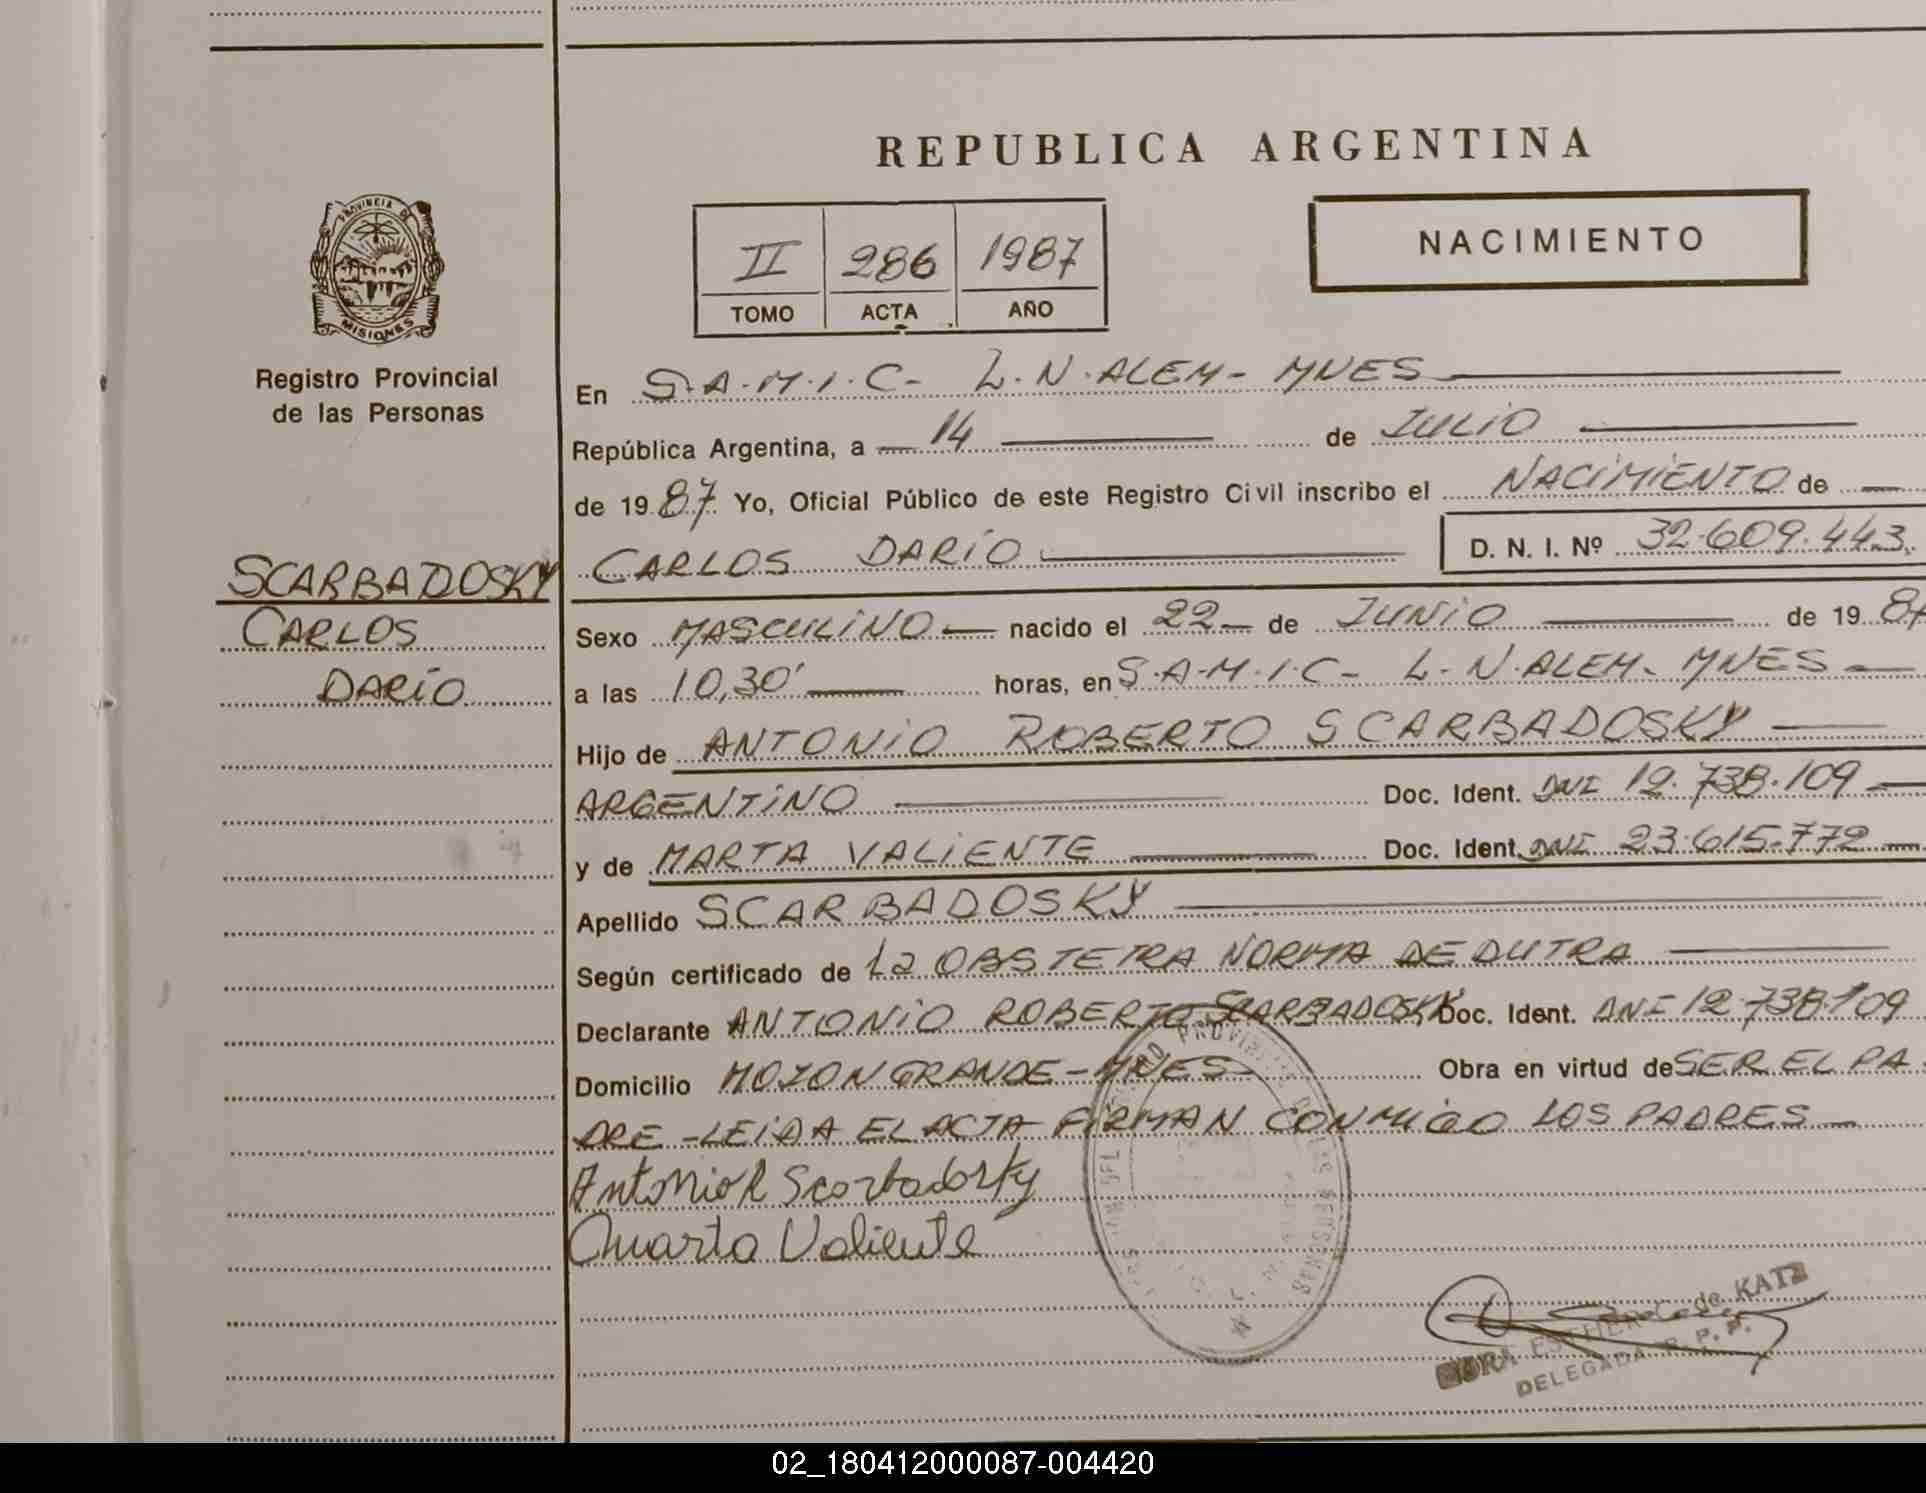 REPUBLICA ARGENTINA
PROVINCIA DE
MISIONES
Registro Provincial
de las Personas
II 286 1987
TOMO ACTA AÑO
NACIMIENTO
En S.A.M.I.C- L.N.ALEM- MNES
República Argentina, a 14 de JULIO
de 19 87 Yo, Oficial Público de este Registro Civil inscribo el NACIMIENTO de
CARLOS DARÍO D. N. I. Nº 32.609.443.
SCARBADOSKY
CARLOS
DARÍO
Sexo MASCULINO nacido el 22 de JUNIO de 19 87
a las 10,30' horas, en S.A.M.I.C- L.N.ALEM- MNES
Hijo de ANTONIO ROBERTO SCARBADOSKY
ARGENTINO Doc. Ident. DNI 12.738.109
y de MARTA VALIENTE Doc. Ident. DNI 23.615.772
Apellido SCARBADOSKY
Según certificado de la OBSTETRA NORMA DE DUTRA
Declarante ANTONIO ROBERTO SCARBADOSKY Doc. Ident. DNI 12.738.109
Domicilio MOJON GRANDE-MNES- Obra en virtud de SER EL PA
DRE -LEIDA EL ACTA FIRMAN CONMIGO LOS PADRES
Antonio R Scarbadosky
Marta Valiente
ESTHER C. de KATZ
DELEGADA R. P. P.
02_180412000087-004420